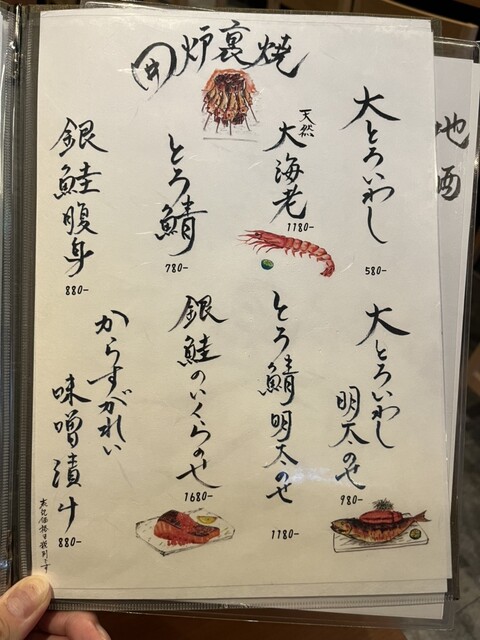 囲炉裏焼
大とろいわし
580-
天然
大海老
1180-
とろ鯖
780-
銀鮭腹身
880-
大とろいわし
明太のせ
980-
とろ鯖明太のせ
1180-
銀鮭のいくらのせ
1680-
からすがれい
味噌漬け
880-
表記価格は税別です
地酒